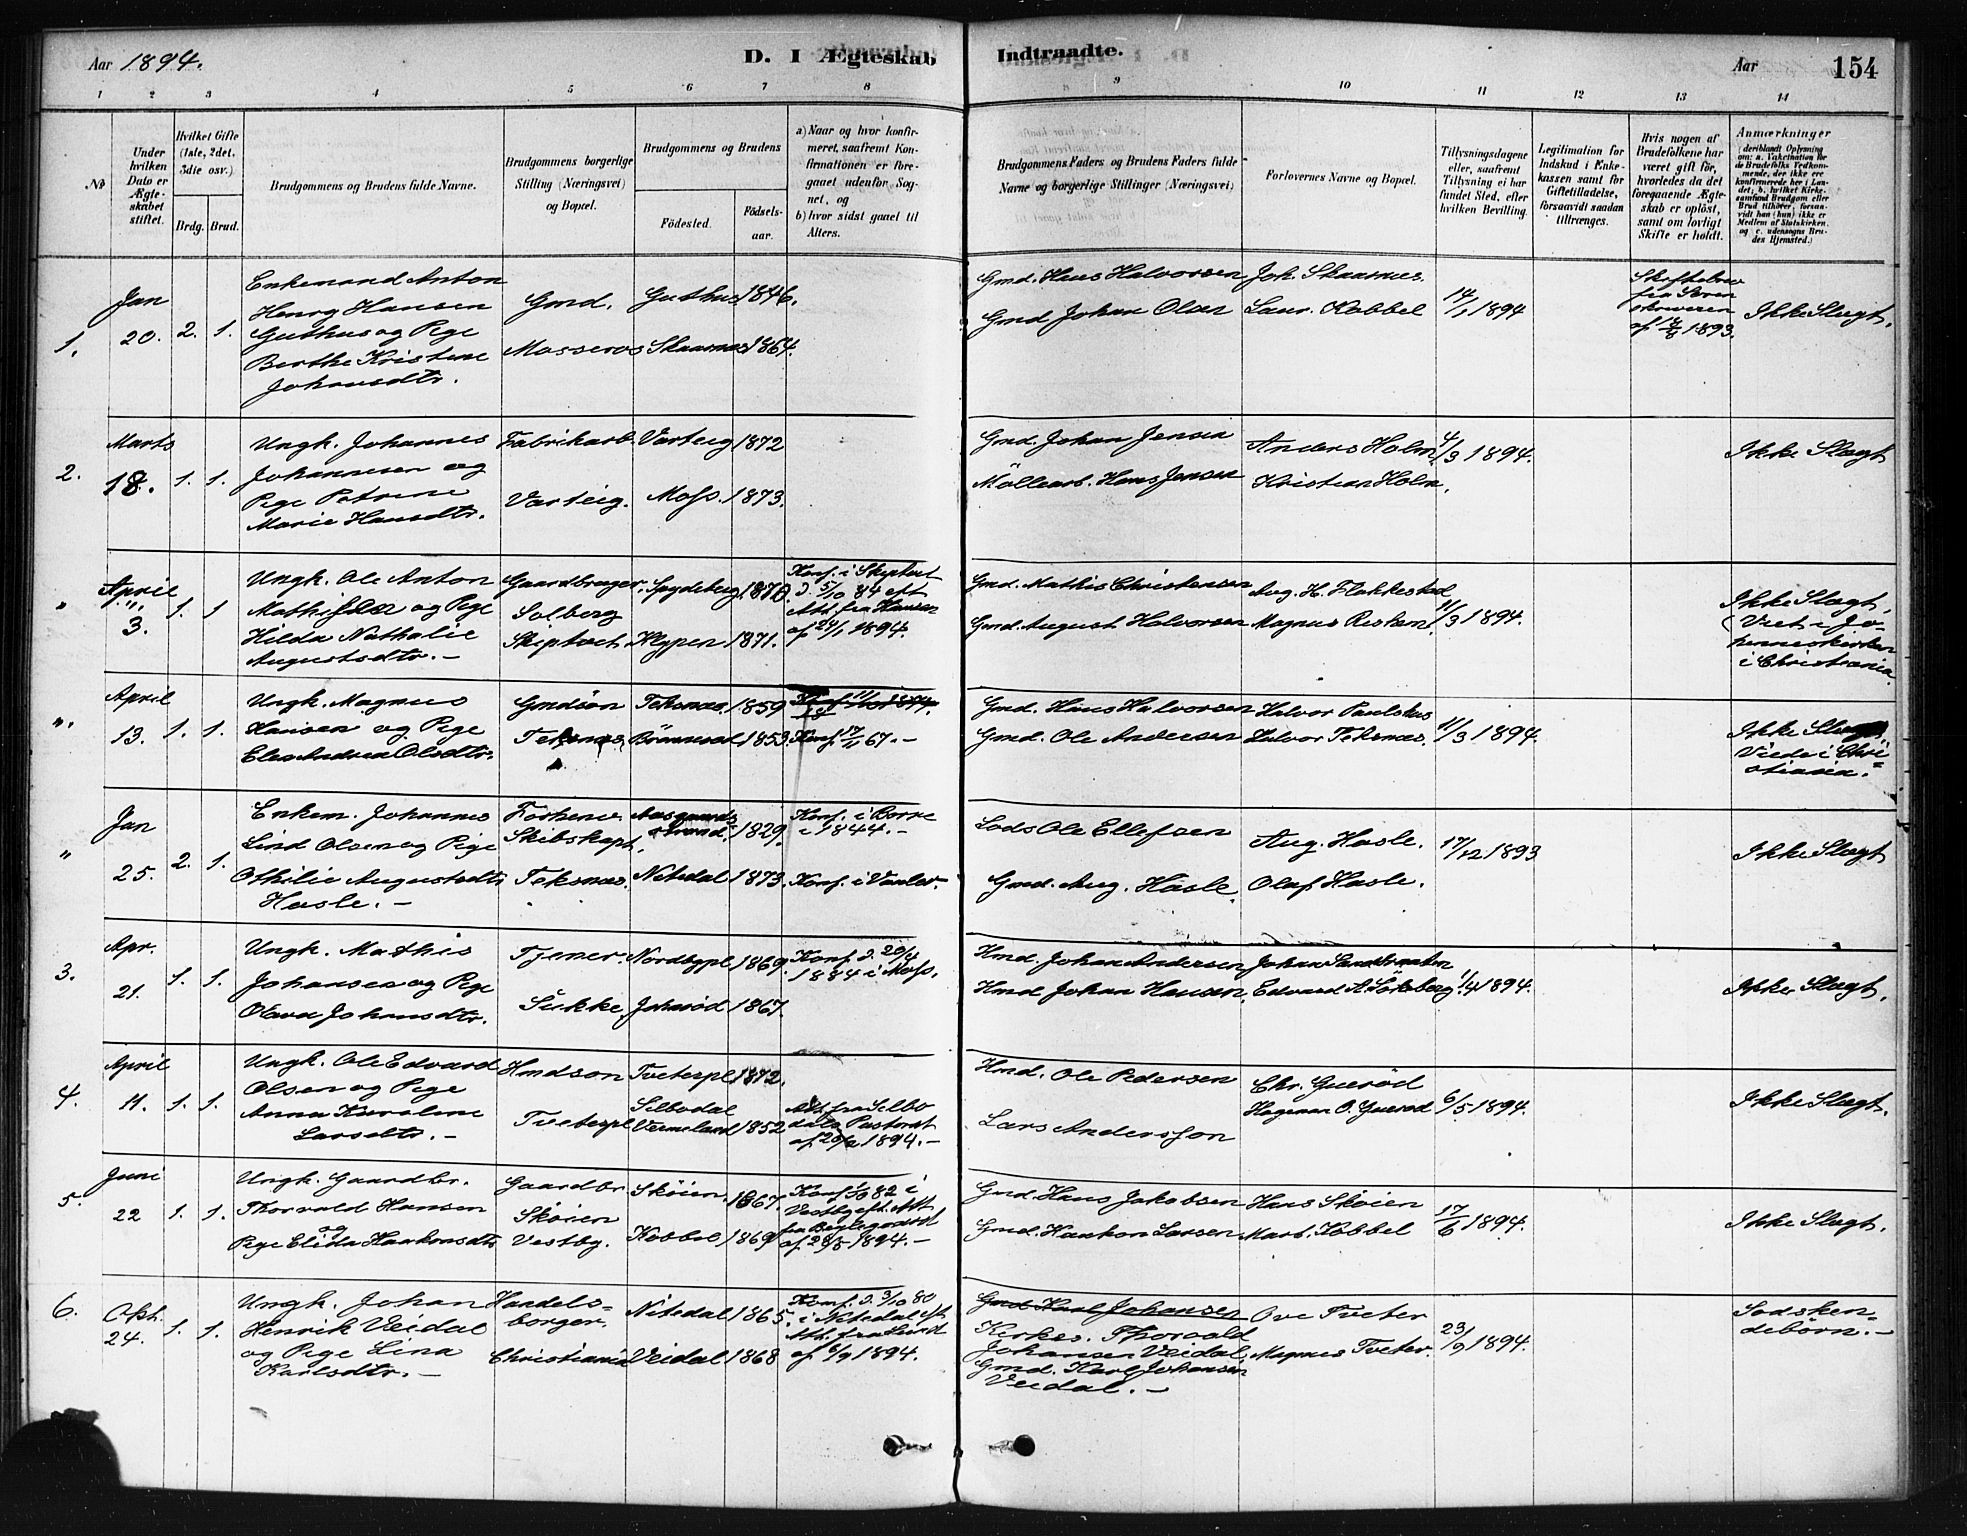 Aar 1894. D. I Ægteskab Indtraadte. Aar 154
1 2 3 4 5 6 7 8 9 10 11 12 13 14
No
Under hvilken Dato er Ægteskabet stiftet.
Hvilket Gifte (1ste, 2det, 3die osv.)
Brdg. Brud.
Brudgommens og Brudens fulde Navne.
Brudgommens borgerlige Stilling (Næringsvei) og Bopæl.
Brudgommens og Brudens
Fødested. Fødselsaar.
a) Naar og hvor konfirmeret, saafremt Konfirmationen er foregaaet udenfor Sognet, og
b) hvor sidst gaaet til Alters.
Brudgommens Faders og Brudens Faders fulde Navne og borgerlige Stillinger (Næringsvei)
Forlovernes Navne og Bopæl.
Tillysningsdagene eller, saafremt Tillysning ei har fundet Sted, efter hvilken Bevilling.
Legitimation for Indskud i Enkekassen samt for Giftetilladelse, forsaavidt saadan tiltrænges.
Hvis nogen af Brudefolkene har været gift før, hvorledes da det foregaaende Ægteskab er opløst, samt om lovligt Skifte er holdt.
Anmærkninger
1.
Jan
20.
2. 1.
Enkemand Anton
Henrg Hansen
Guthus og Pige
Berthe Kristine
Johansdtr.
Gmd.
Mosseros
Guthus 1846.
Skaarnes 1864.
Gmd. Hans Halvorsen
Gmd Johan Olsen
Joh. Skaarnes.
Laur. Kobbel
14/1 1894
Skiftebrev
fra Soren
skriveren
1893.
Ikke Slægt.
2.
Marts
18.
1. 1.
Ungk. Johannes
Johannesen og
Pige Petrine
Marie Hansdtr.
Fabrikarb.
Varteig.
Varteig 1872
Moss. 1873.
Gmd. Johan Jensen
Möllearb. Hans Jensen
Anders Holm
Kristian Holm.
4/3 1894.
Ikke Slægt
"
April
3.
1. 1
Ungk. Ole Anton
Mathisen og Pige
Hilda Nathalie
Augustsdtr. —
Gaardbruger.
Solberg
Skiptvet
Spydeberg 1870.
Klypen 1871.
Konf. i Skiptvet
d. 5/10 84 eft
Att. fra Hansen
af 24/1 1894.
Gmd. Mathis Christensen
Gmd. August Halvorsen
Aug. H. Flakkestad
Magnus Restem
11/3 1894.
Ikke Slægt.
Viet i Jo-
hanneskirken
i Christiania.
"
April
13.
1. 1.
Ungk. Magnus
Hansen og Pige
Elen Andrea Olsdtr.
Gmdsön
Teksnæs
Teksnæs. 1859
Bönnerød 1853
Konf. 17/11 67. —
Gmd. Hans Halvorsen
Gmd. Ole Andersen
Halvor Paulshus
Halvor Teksnæs.
11/3 1894.
Ikke Slægt.
Viede i Chri-
stiania.
"
Jan
25.
2. 1.
Enkem. Johannes
Lind Olsen og Pige
Othilie Augustsdtr
Hasle. —
Forhenv.
Skibskapt.
Teksnæs.
Aasgaards
strand. 1829.
Nitedal 1873.
Konf. i Borre
i 1844. —
Konf. i Vaaler.
Lods Ole Ellefsen
Gmd. Aug. Hasle
Aug. Hasle.
Olaf Hasle.
17/12 1893
Ikke Slægt
3.
Apr.
21.
1. 1.
Ungk. Mathis
Johansen og Pige
Olava Johansdtr.
Tjener.
Sukke
Nordbypl 1869.
Johnrød 1867.
Konf. d. 20/4
1884 i Moss.
Hmd. Johan Andersen
Hmd Johan Hansen.
Edvard A.
1/4 1894.
Ikke Slægt.
4.
April
11.
1. 1.
Ungk. Ole Edvard
Olsen og Pige
Anna Karoline
Larsdtr. —
Hmdsön
Tveterpl
Tveterpl 1872.
Silbodal
Vermeland 1852
Att. fra Silbo
dals Pastorat
af 1894. —
Hmd. Ole Pedersen
Lars Andersson
Chr. Guerød
Hageman O. Guerød
6/5 1894.
Ikke Slægt.
5.
Juni
22
1. 1.
Ungk. Gaardbr.
Thorvald Hansen
og
Pige Elida Haakonsdtr
Gaardbr
Skøien
Vestby.
Skøien. 1867.
Kobbel 1869
Konf. 82 i
Vestby eft. Att
fra
af 28/5 1894. —
Gmd. Hans Jakobsen
Gmd. Haakon Larsen
Hans Skøien
Mart. Kobbel
17/6 1894.
Ikke Slægt.
6.
Okt.
24.
1. 1.
Ungk. Johan
Henrik Veidal
og Pige Lina
Karlsdtr. —
Handels-
borger.
Christiania
Nitedal 1865.
Veidal 1868
Konf. d. 3/10 80
i Nitedal eft.
Att. fra Lund
af 6/9 1894.
Gmd Karl Johansen
Kirkes. Thorvald
Johansen Veidal
Gmd. Karl Johansen
Veidal. —
Ove Tveter
Magnus Tveter.
23/9 1894.
Sødsken-
debörn. —